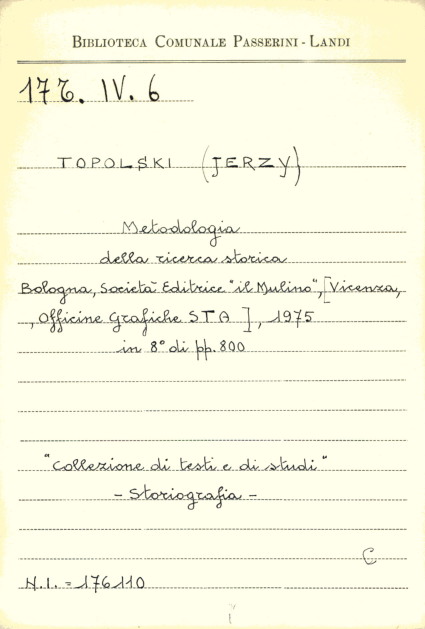 BIBLIOTECA COMUNALE PASSERINI - LANDI
17 Z. IV. 6
TOPOLSKI (JERZY)
Metodologia
della ricerca storica
Bologna, Società Editrice "il Mulino", [Vicenza,
, Officine Grafiche STA ], 1975
in 8° di pp. 800
"Collezione di testi e di studi"
- Storiografia -
C
N.I. = 176110